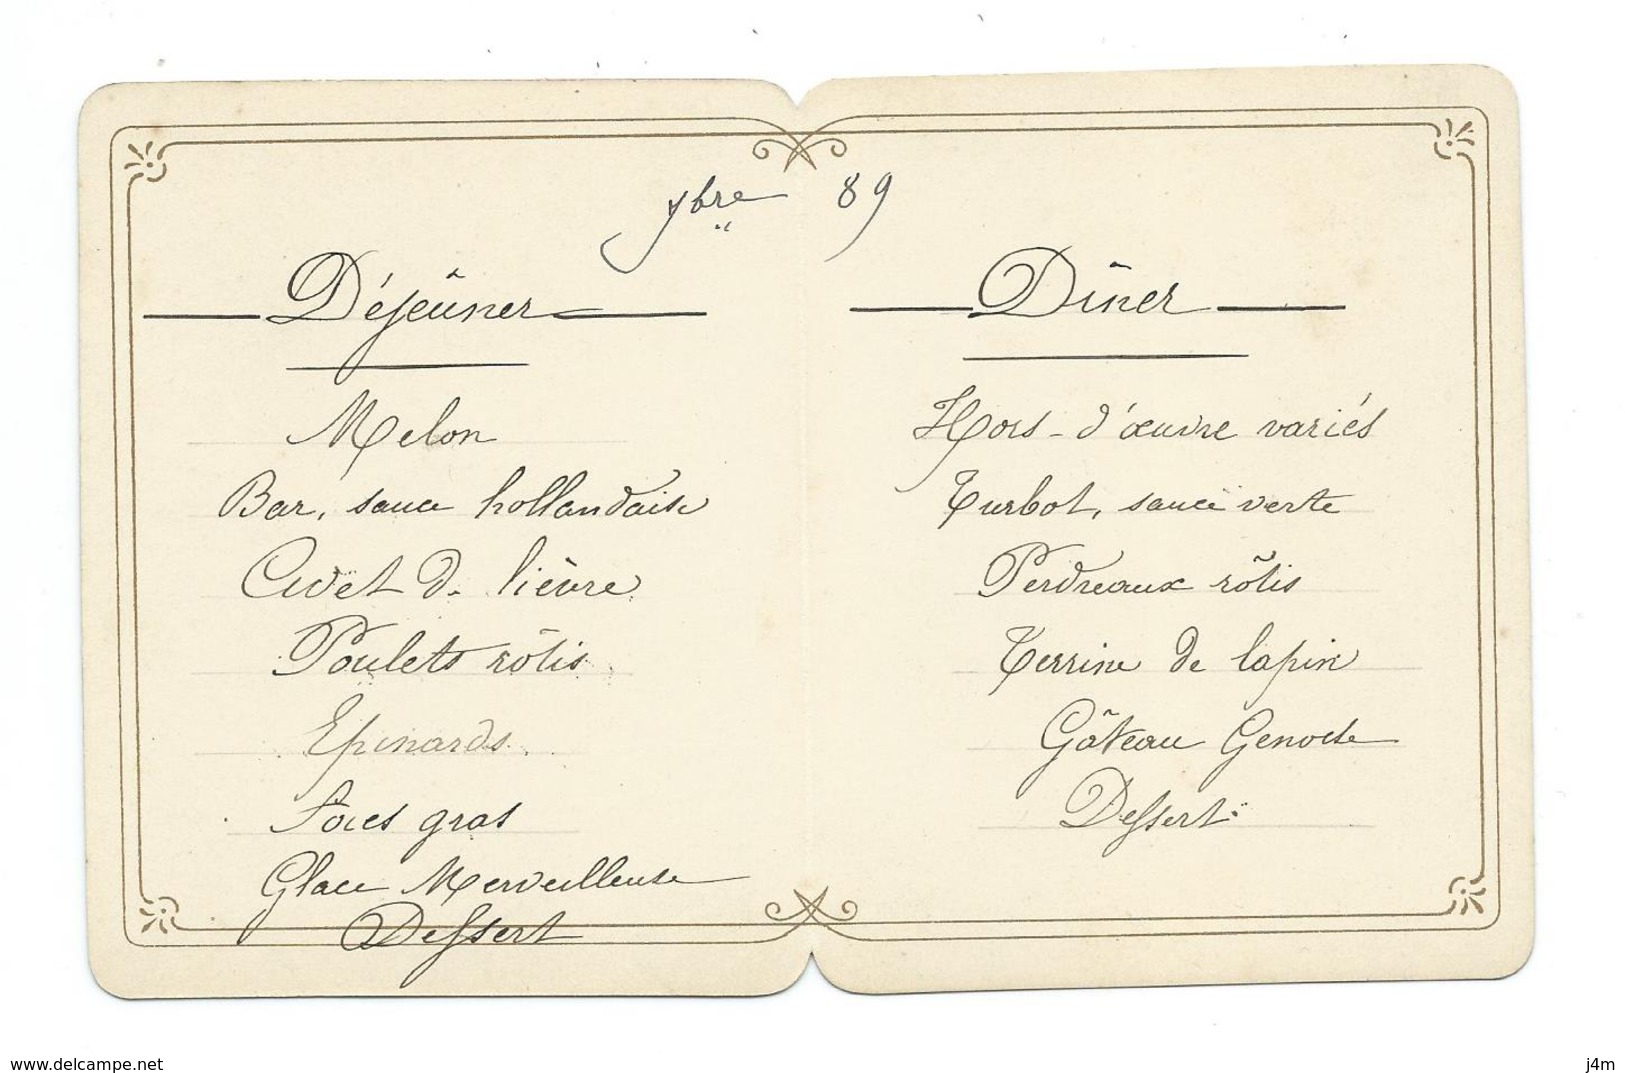 9bre 89
Déjeûner
Melon
Bar, sauce hollandaise
Civet de lièvre
Poulets rôtis
Epinards
Foies gras
Glace Merveilleuse
Dessert
Dîner
Hors-d'œuvre variés
Turbot, sauce verte
Perdreaux rôtis
Terrine de lapin
Gâteau Genoise
Dessert
www.delcampe.net
j4m